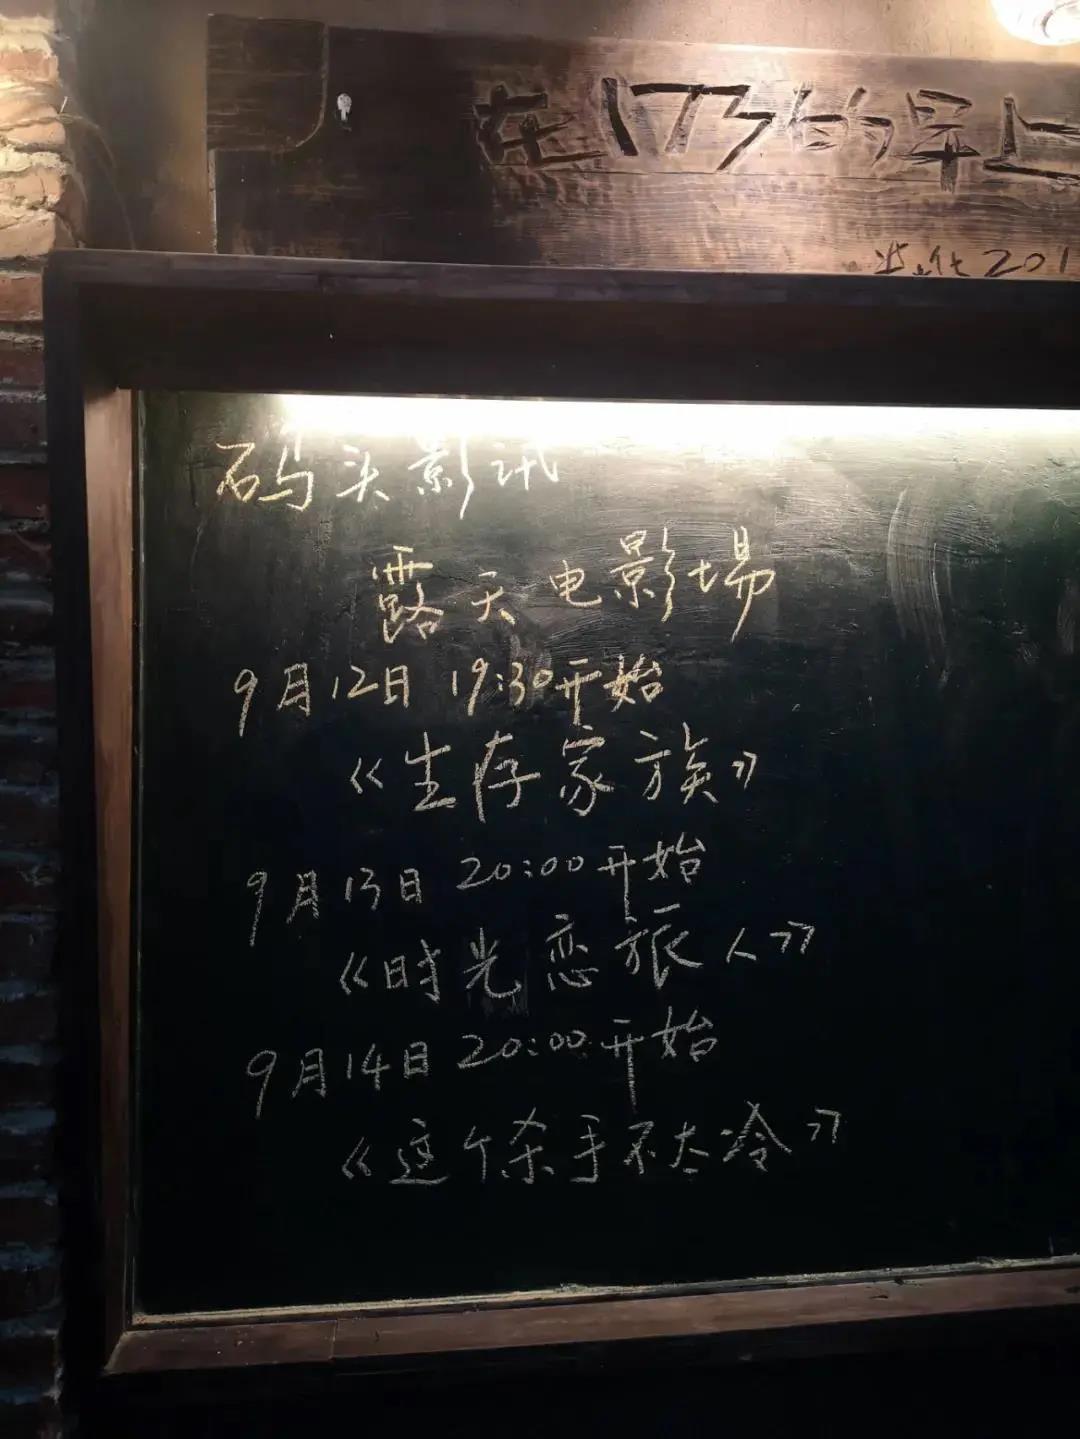 在1773的早上
201
码头影讯
露天电影場
9月12日 19:30开始
《生存家族》
9月13日 20:00开始
《时光恋旅人》
9月14日 20:00开始
《这个杀手不太冷》